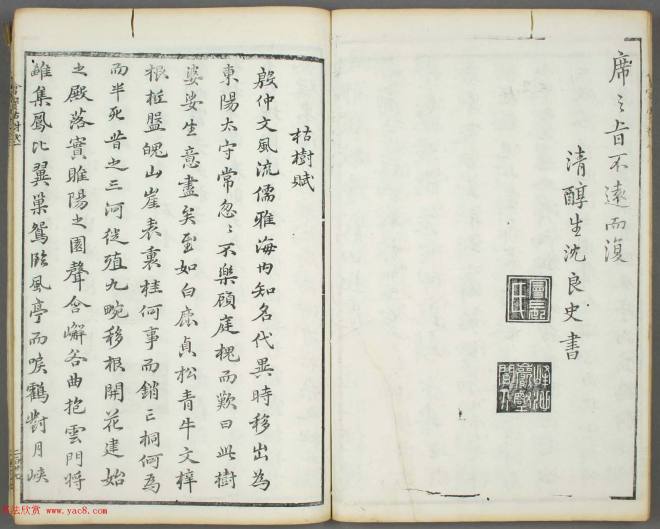 席之旨不遠而復
清醇生沈良史書
枯樹賦
殷仲文風流儒雅海內知名代異時移出為
東陽太守常忽〻不樂顧庭槐而歎曰此樹
婆娑生意盡矣至如白鹿貞松青牛文梓
根柢盤魄山崖表裏桂何事而銷亡桐何為
而半死昔之三河徙殖九畹移根開花建始
之殿落實睢陽之園聲含嶰谷曲抱雲門將
雛集鳳比翼巢鴛臨風亭而唳鶴對月峽
书法欣赏 www.yac8.com